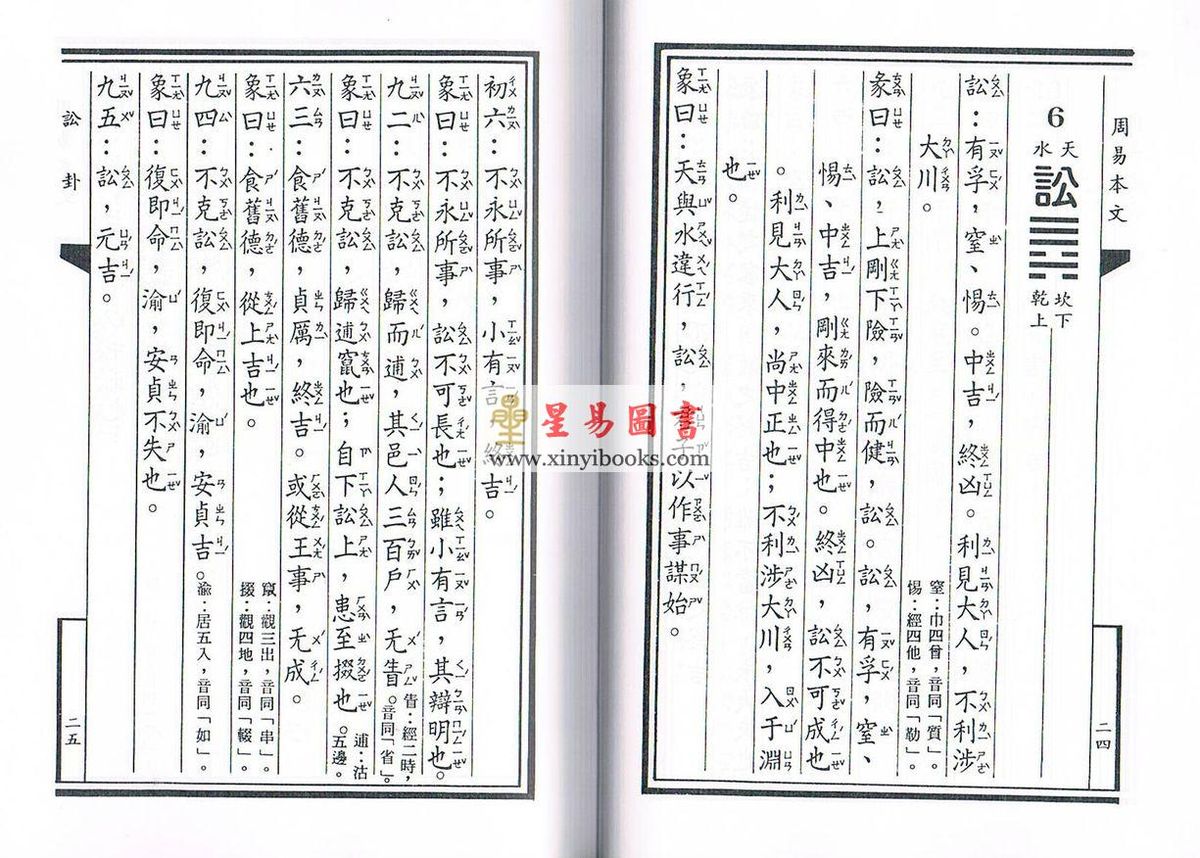 周易本文
6
天水
訟
坎下
乾上
訟：有孚，窒、惕。中吉，終凶。利見大人，不利涉
大川。
窒：巾四曾，音同「質」。
惕：經四他，音同「勒」。
彖曰：訟，上剛下險，險而健，訟。訟，有孚，窒、
惕、中吉，剛來而得中也。終凶，訟不可成也
。利見大人，尚中正也；不利涉大川，入于淵
也。
象曰：天與水違行，訟，子以作事謀始。
二四
初六：不永所事，小有言，終吉。
象曰：不永所事，訟不可長也；雖小有言，其辯明也。
九二：不克訟，歸而逋，其邑人三百戶，无眚。
眚：經二時，
音同「省」。
象曰：不克訟，歸逋竄也；自下訟上，患至掇也。
逋：沽
五邊。
六三：食舊德，貞厲，終吉。或從王事，无成。
竄：觀三出，音同「串」。
掇：觀四地，音同「輟」。
象曰：食舊德，從上吉也。
九四：不克訟，復即命，渝，安貞吉。
渝：居五入，音同「如」。
象曰：復即命，渝，安貞不失也。
九五：訟，元吉。
訟卦
二五
星易圖書
www.xinyibooks.com